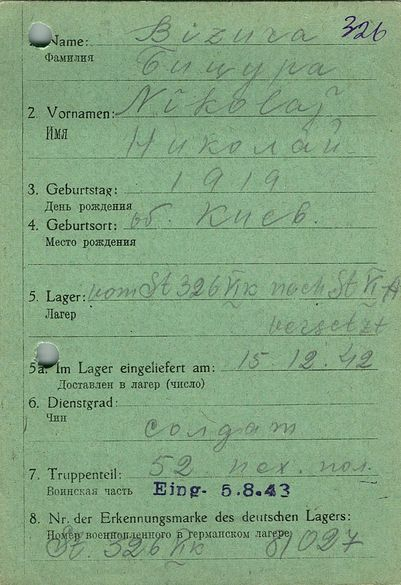 Bizura 326
1. Name:
Фамилия Бицура
2. Vornamen: Nikolaj
Имя Николай
3. Geburtstag: 1919
День рождения
4. Geburtsort: об. Киев.
Место рождения
5. Lager: vom St 326 VI K nach St VI A
Лагер versetzt
5a. Im Lager eingeliefert am: 15. 12. 42
Доставлен в лагер (число)
6. Dienstgrad:
Чин солдат
7. Truppenteil: 52 пех. пол.
Воинская часть Eing. 5.8.43
8. Nr. der Erkennungsmarke des deutschen Lagers:
Номер военнопленного в германском лагере:
St. 326 VI K 81027